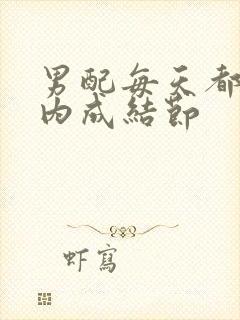 男配每天都
内成結節
虾寫